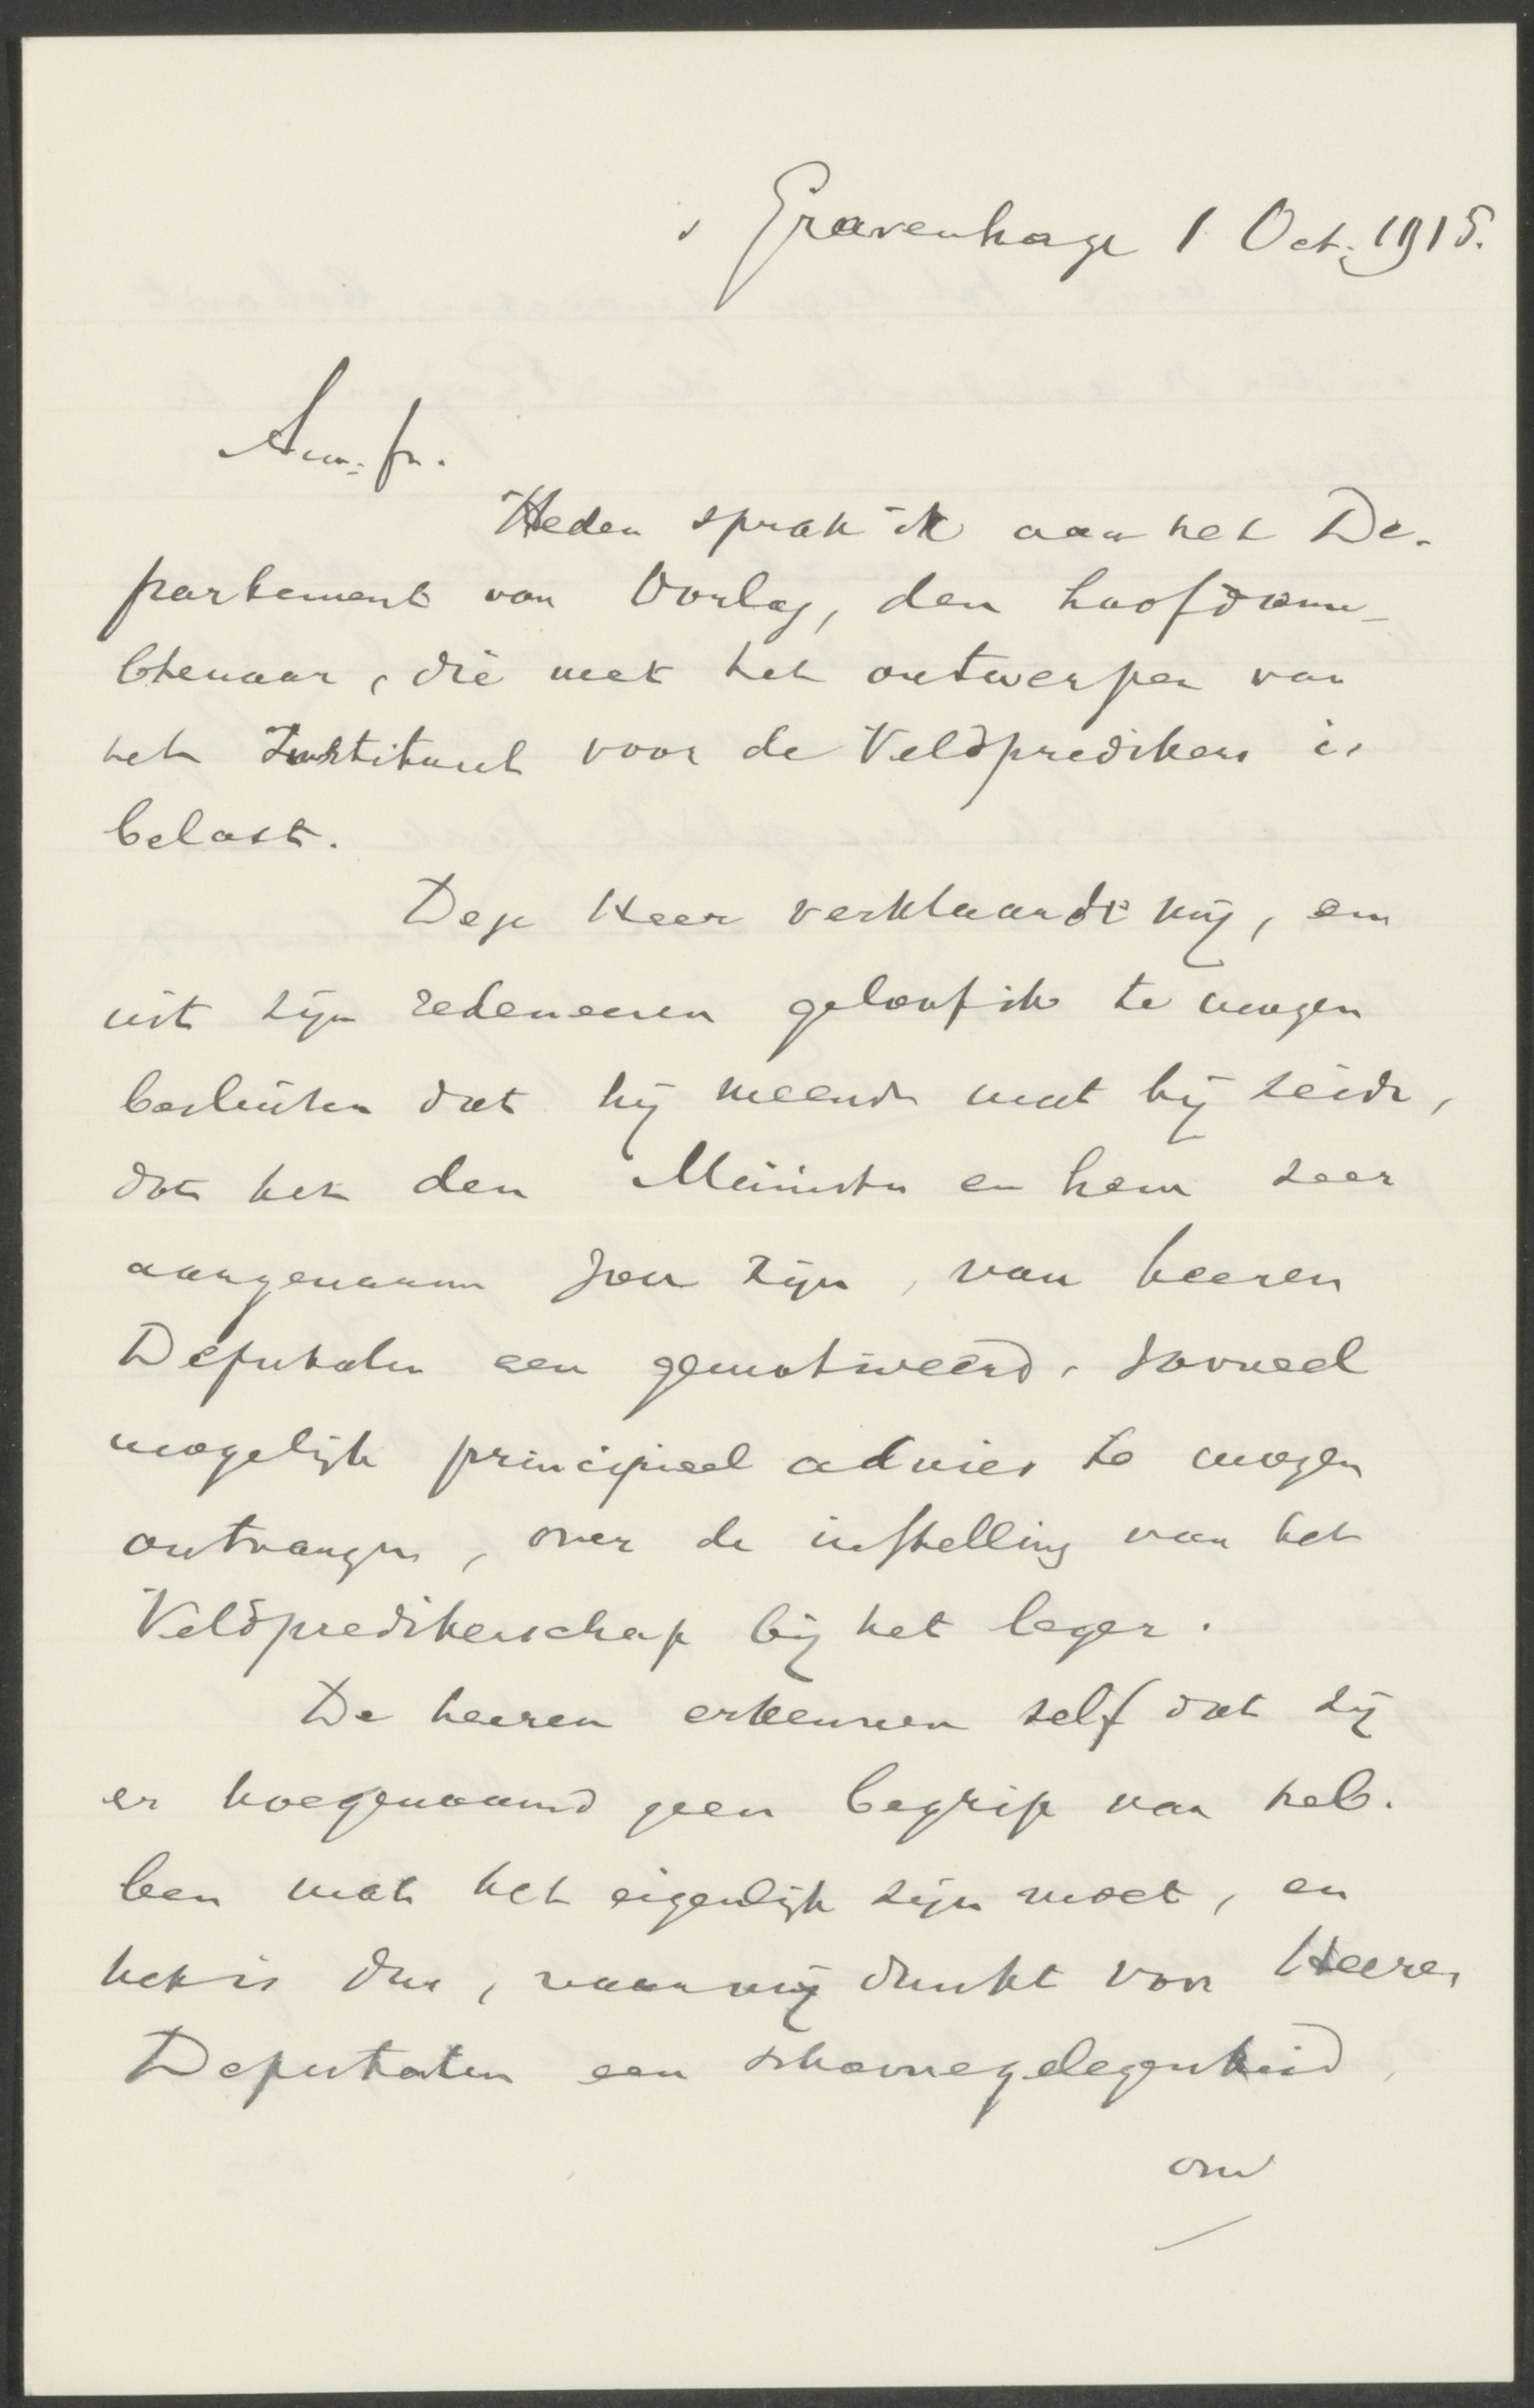 's Gravenhage 1 Oct. 1915.
Am. fr.
Heden sprak ik aan het De-
partement van Oorlog, den hoofdamb-
tenaar, die met het ontwerpen van
het Instituut voor de Veldpredikers is
belast.
Deze Heer verklaarde mij, en
uit zijn redeneeren geloof ik te mogen
besluiten dat hij meende wat hij zeide,
dat het den Minister en hem zeer
aangenaam zou zijn, van heeren
Deputaten een gemotiveerd, zooveel
mogelijk principieel advies te mogen
ontvangen, over de instelling van het
Veldpredikerschap bij het leger.
De heeren erkennen zelf dat zij
er hoegenaamd geen begrip van heb-
ben wat het eigenlijk zijn moet, en
het is dus, naar mij dunkt voor Heeren
Deputaten een schoone gelegenheid,
om